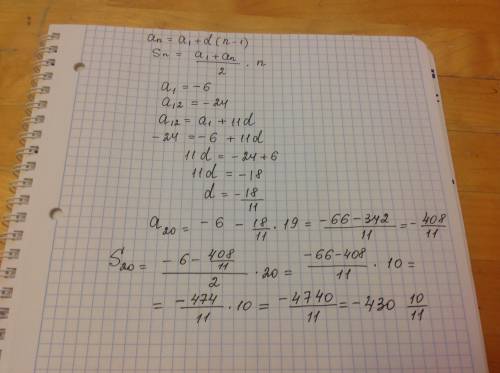 an = a1 + d(n-1)
Sn = (a1 + an)/2 · n
a1 = -6
a12 = -24
a12 = a1 + 11d
-24 = -6 + 11d
11d = -24+6
11d = -18
d = -18/11
a20 = -6 - 18/11 · 19 = (-66-342)/11 = -408/11
S20 = (-6 - 408/11)/2 · 20 = (-66-408)/11 · 10 =
= -474/11 · 10 = -4740/11 = -430 10/11